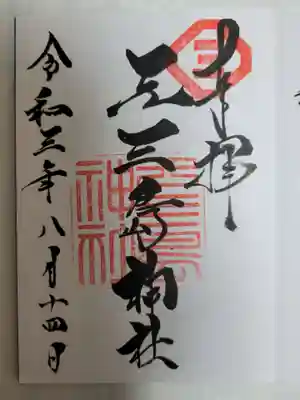 奉拝
元三島神社
令和三年八月十四日